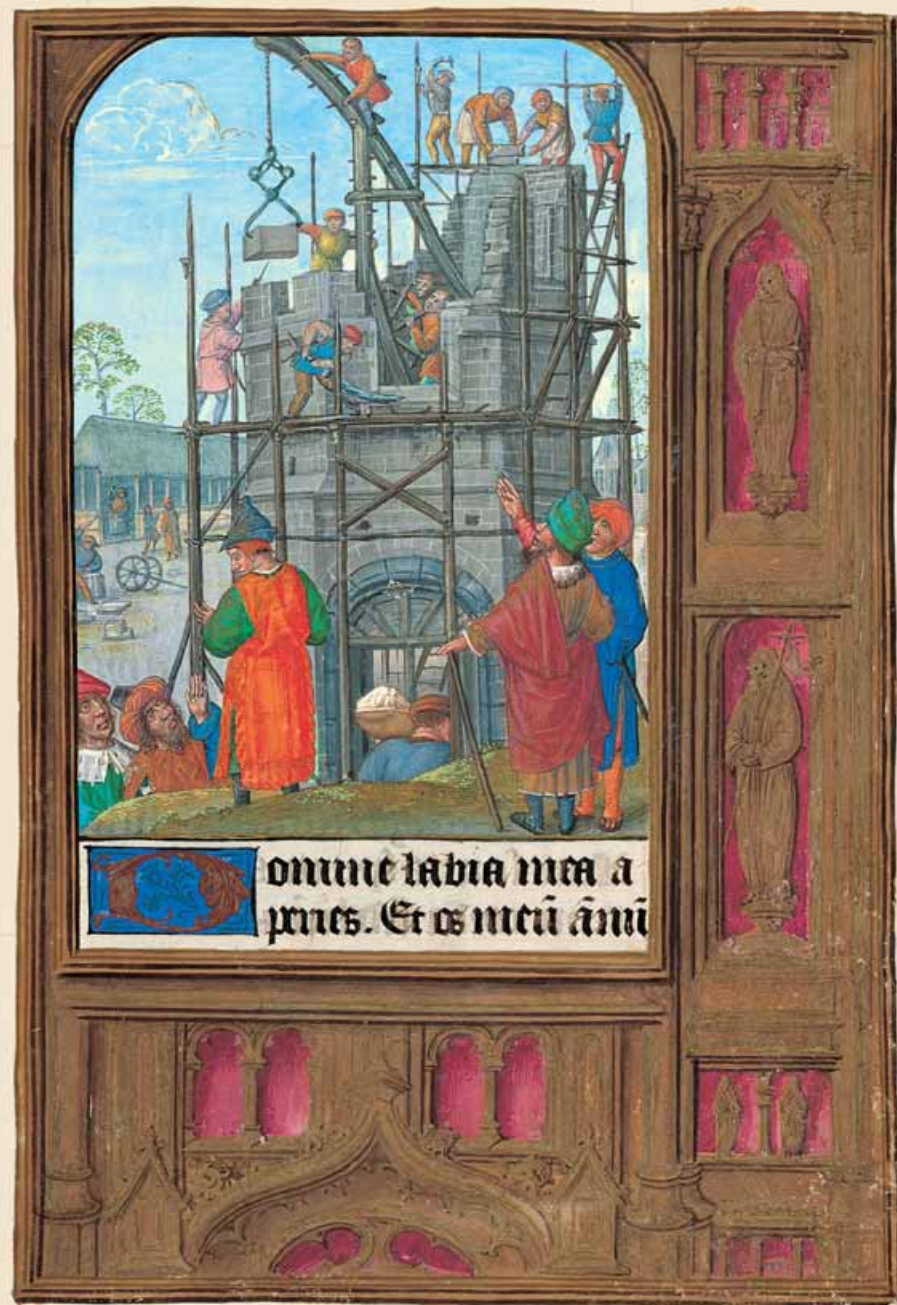 Domine labia mea a
peries. Et os meū ānū